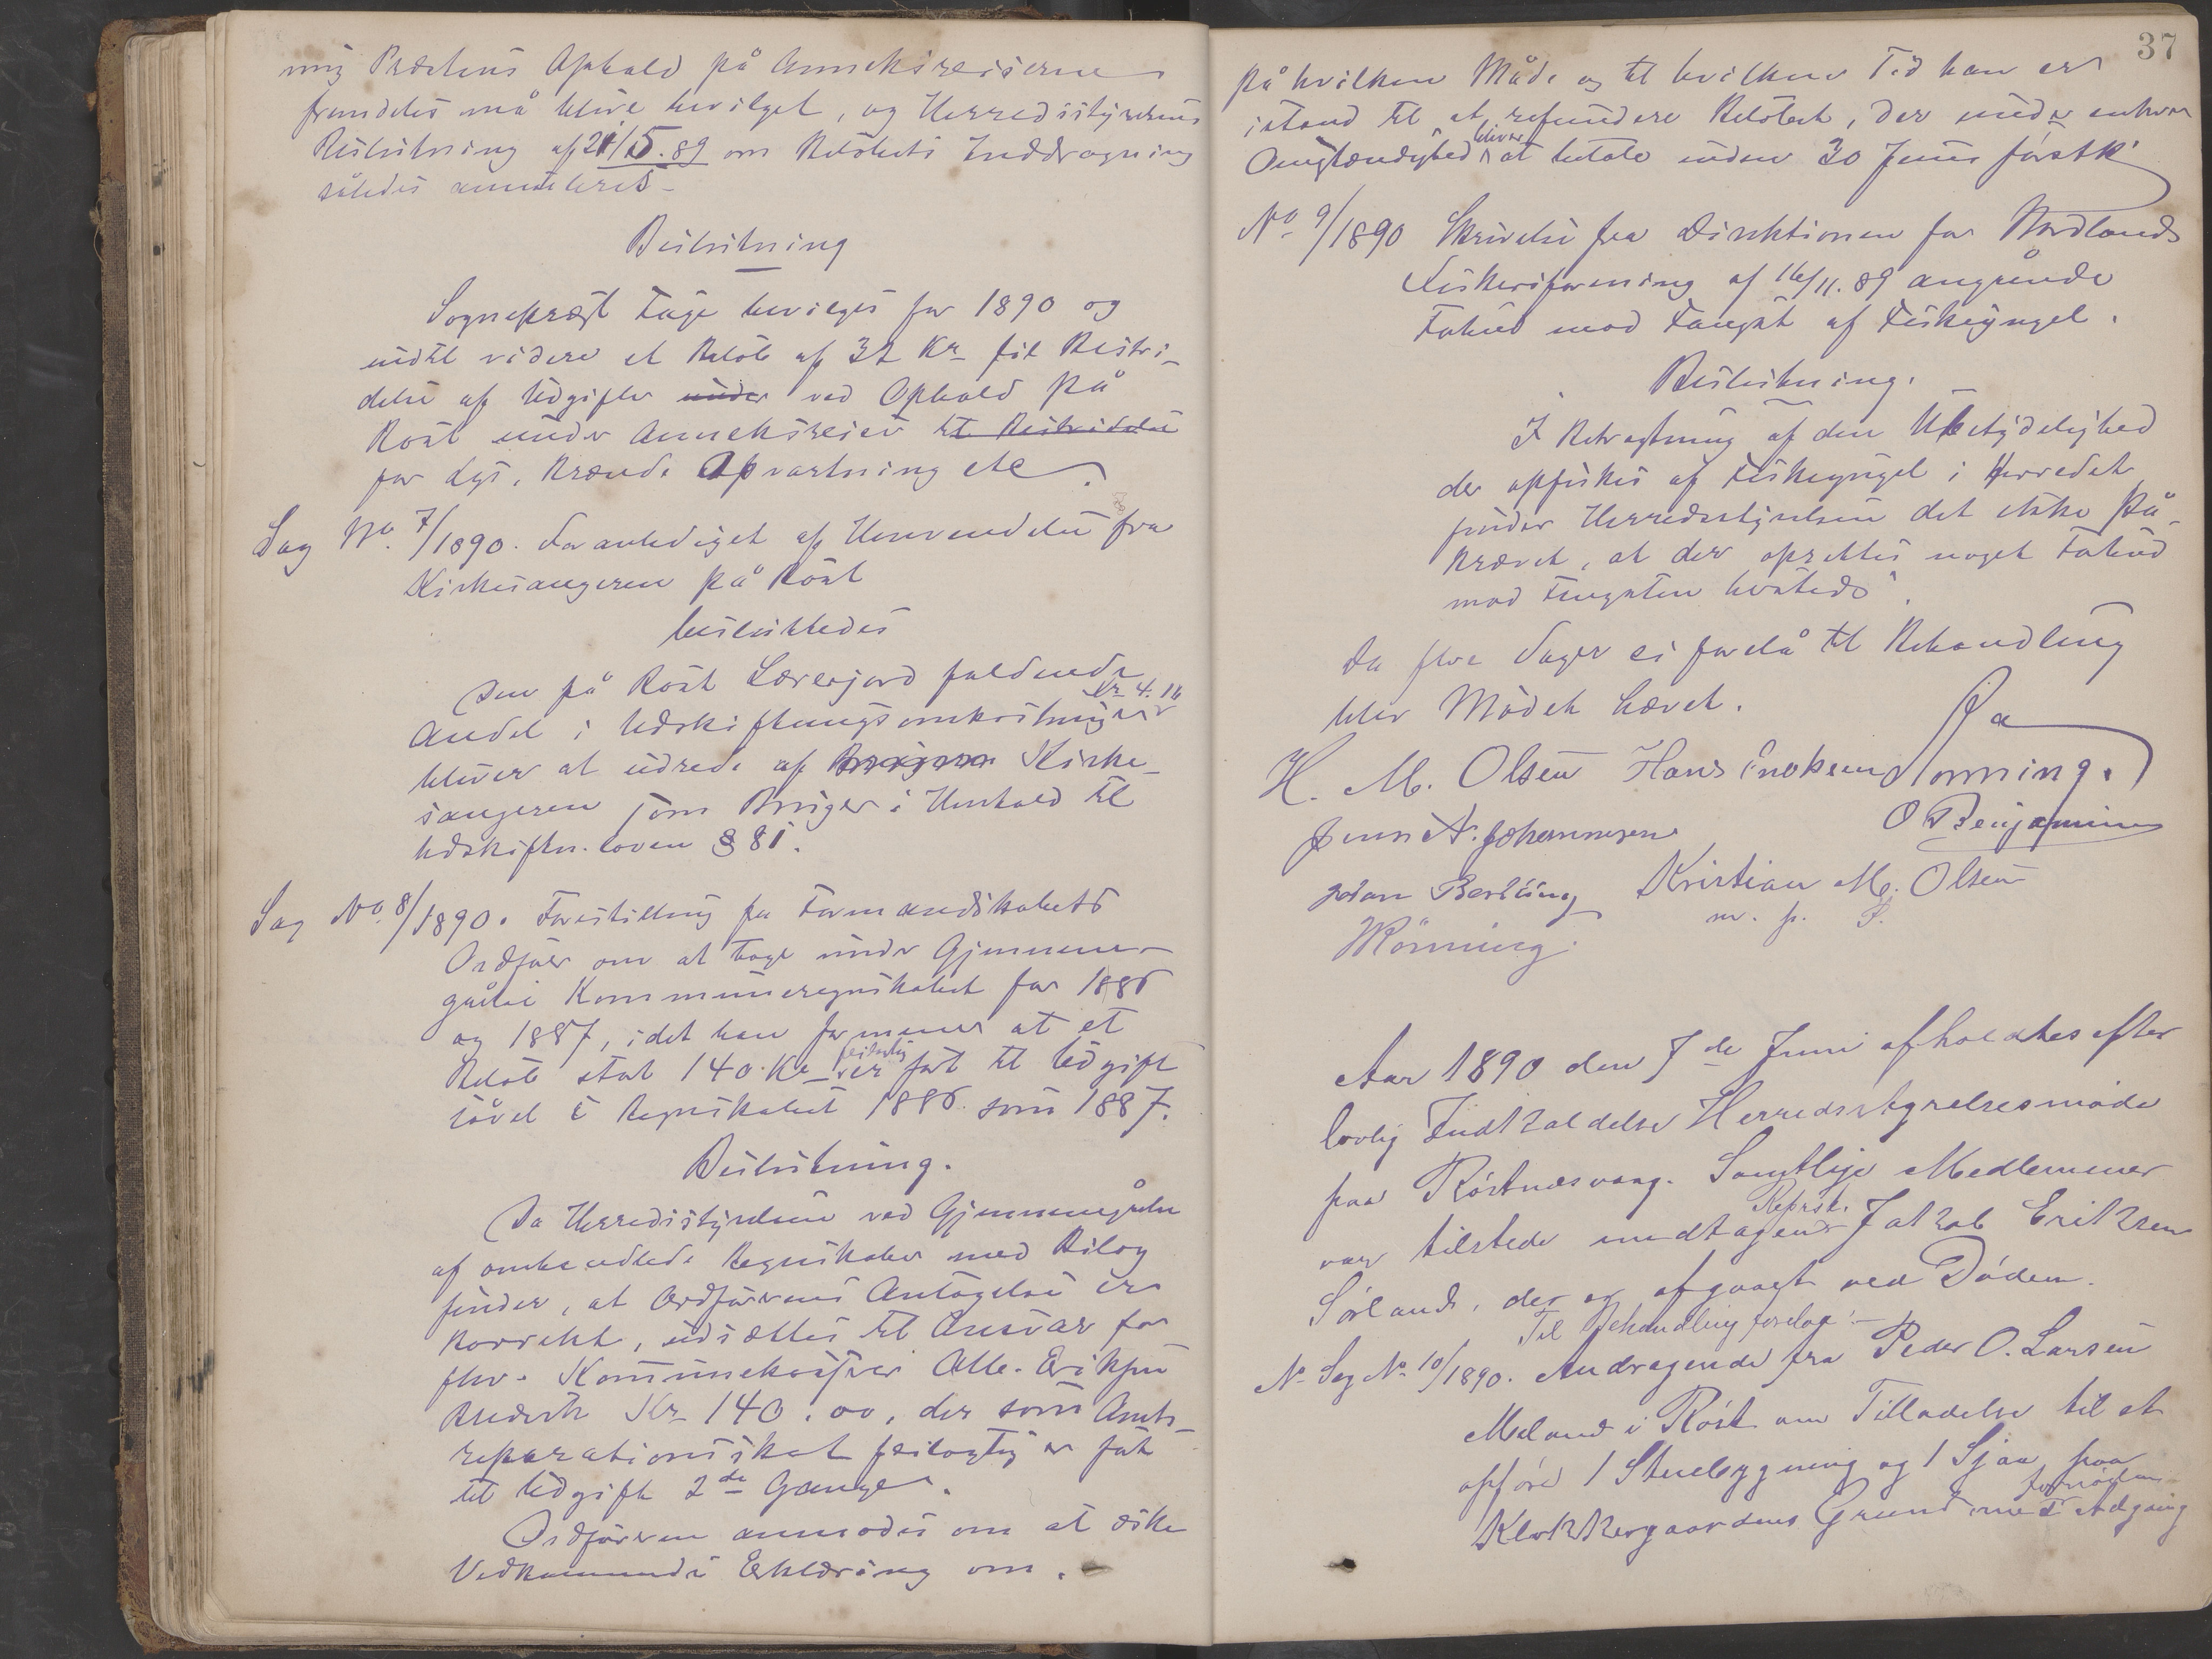 ning Præstens Ophold på Anneksreiserne
fremdeles må blive bevilget, og Herredsstyrelsens
Beslutning af 21/5.89 om Beløbets Inddragning
således annulleret.
Beslutning
Sogneprest Fage bevilges for 1890 og
indtil videre et Beløb af 32 Kr. til Bestri-
delse af Udgifter under ved Ophold på
Røst under Anneksreiser til Bestridelse
for Lys, Brænde Opvartning etc.
Sag No. 7/1890. Foranlediget af Henvendelse fra
Kirkesangeren på Røst
besluttedes
Den på Røst Lærerjord faldende
Andel i Udskiftningsomkostninger Kr. 4.16
bliver at udrede af Kirke-
sangeren som Bruger i Henhold til
Udskiftn. loven § 81.
Sag No. 8/1890. Forestilling fra Formandskabets
Ordfører om at tage under Gjennem-
gåelse Kommuneregnskabet for 1886
og 1887, idet han formener at et
Beløb stort 140 Kr. feilagtig er ført til Udgift
såvel i Regnskabet 1886 som 1887.
Beslutning.
Da Herredsstyrelsen ved Gjennemgåelse
af omhandlede Regnskaber med Bilag
finder, at Ordførerens Antagelse er
korrekt, udsættes til Ansvar for
fhv. Kommunekasserer Alb. Eriksen
Kr. 140.00, der som Amts-
reparationsskat feilagtig er ført
til Udgift 2de Gange.
Ordføreren anmodes om at æske
Vedkommendes Erklæring om,
37
på hvilken Måde og til hvilken Tid han er
istand til at refundere Beløbet, der under enhver
Omstændighed bliver at betale inden 30 Juni førstk.
No. 9/1890 Skrivelse fra Direktionen for Nordlands
Fiskeriforening af 16/11.89 angående
Forbud mod Fangst af Fiskeyngel.
Beslutning.
I Betragtning af den Ubetydelighed
der opfiskes af Fiskeyngel i Herredet
finder Herredsstyrelsen det ikke på-
krævet, at der oprettes noget Forbud
mod Fangsten hersteds.
Da flere Sager ei forelå til Behandling
blev Mødet hævet.
H. M. Olsen Hans Enoksen Rønning.
Jens A. Johannesen O Benjaminsen
Johan Berthing Kristian M. Olsen
m. p. P.
Rönning.
Aar 1890 den 7de Juni afholdtes efter
lovlig Indkaldelse Herredsstyrelsesmøde
paa Røstnesvaag. Samtlige Medlemmer
var tilstede undtagen Reprst. Jakob Eriksen
Sørland, der er afgaaet ved Døden.
Til Behandling forelaa:
N. Sag No. 10/1890. Andragende fra Peder O. Larsen
i Røst om Tilladelse til at
opføre 1 Stuebygning og 1 Sjaa paa
Klokkergaardens Grund med fornøden Adgang